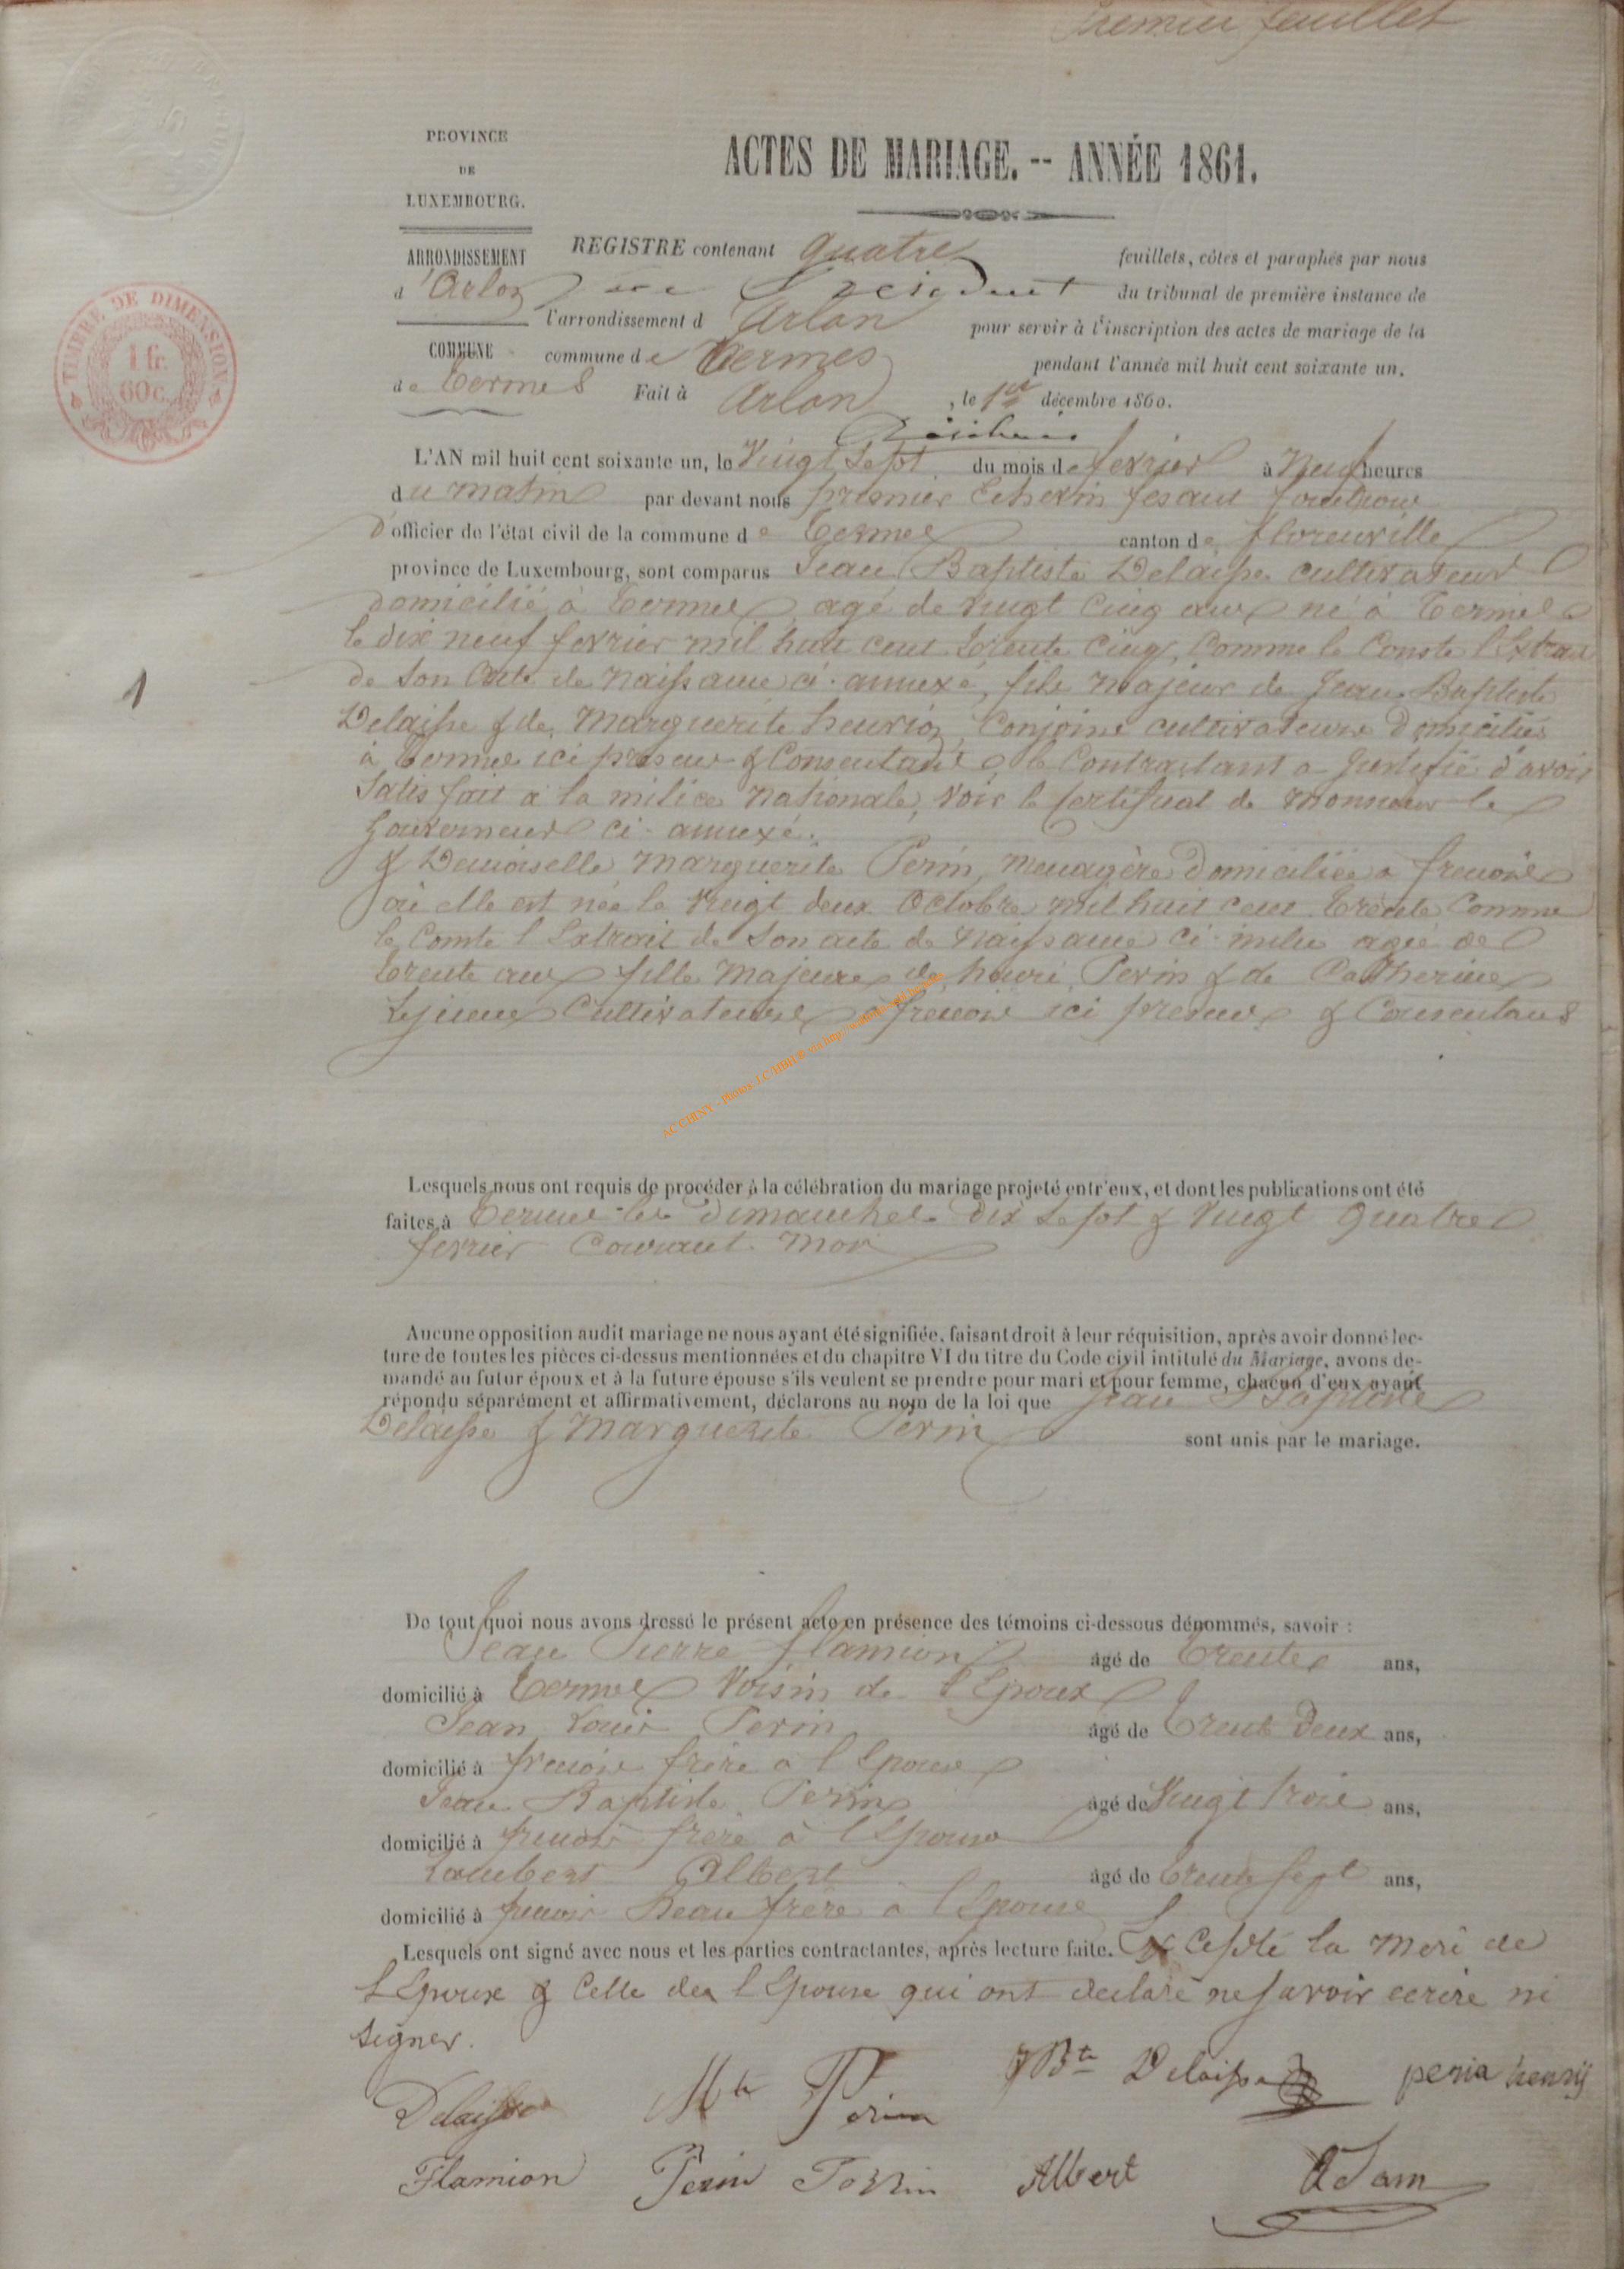 Premier feuillet
PROVINCE
DE
LUXEMBOURG.
ACTES DE MARIAGE. -- ANNÉE 1861.
ARRONDISSEMENT
d'Arlon
COMMUNE
de Termes
TIMBRE DE DIMENSION
1 fr.
60 c.
REGISTRE contenant quatre feuillets, côtés et paraphés par nous
Président du tribunal de première instance de
l'arrondissement d Arlon pour servir à l'inscription des actes de mariage de la
commune de Termes pendant l'année mil huit cent soixante un.
Fait à Arlon, le 1er décembre 1860.
L'AN mil huit cent soixante un, le Vingt Sept du mois de fevrier à Neuf heures
du matin par devant nous premier Echevin fesant fonction
d'officier de l'état civil de la commune de Termes canton de florenville
province de Luxembourg, sont comparus Jean Baptiste Delaisse cultivateur
domicilié à Termes agé de vingt cinq ans né à Termes
le dix neuf fevrier mil huit cent trente cinq, comme le Conste l'Extrait
de son acte de naissance ci-annexé, fils majeur de Jean Baptiste
Delaisse & de Marguerite henrion, Conjoins cultivateurs domiciliés
à Termes ici présens & Consentans le Contractant a justifié d'avoir
Satisfait à la milice Nationale, voir le Certificat de Monsieur le
Gouverneur ci-annexé.
& Demoiselle Marguerite Perin, menagère domiciliée à frenois
où elle est née le Vingt deux Octobre mil huit cent trente Comme
le Conste l'Extrait de son acte de Naissance ci-inclu agée de
trente ans fille Majeure de henri Perin & de Catherine
Lejeune Cultivateurs à frenois ici presens & Consentans
AC CHINY - Photos J.CARIBIER
1
Lesquels nous ont requis de procéder à la célébration du mariage projeté entr'eux, et dont les publications ont été
faites à Termes les dimanches dix Sept & Vingt quatre
fevrier Courant. mois
Aucune opposition audit mariage ne nous ayant été signifiée, faisant droit à leur réquisition, après avoir donné lec-
ture de toutes les pièces ci-dessus mentionnées et du chapitre VI du titre du Code civil intitulé du Mariage, avons de-
mandé au futur époux et à la future épouse s'ils veulent se prendre pour mari et pour femme, chacun d'eux ayant
répondu séparément et affirmativement, déclarons au nom de la loi que Jean Baptiste
Delaisse & Marguerite Perin sont unis par le mariage.
De tout quoi nous avons dressé le présent acte en présence des témoins ci-dessous dénommés, savoir :
Jean Pierre flamion âgé de Trente ans,
domicilié à Termes Voisin de l'Epoux
Jean Louis Perin âgé de Trente Deux ans,
domicilié à frenois frère à l'Epouse
Jean Baptiste Perin âgé de Vingt trois ans,
domicilié à frenois frère à l'Epouse
Lambert Albert âgé de trente sept ans,
domicilié à frenois Beau frère à l'Epouse
Lesquels ont signé avec nous et les parties contractantes, après lecture faite. Excepté la mere de
l'Epoux & Celle de l'Epouse qui ont declaré ne savoir ecrire ni
signer.
Delaisse Mte Perin JBte Delaisse perin henrÿ
Flamion Perin Perrin Albert Adam